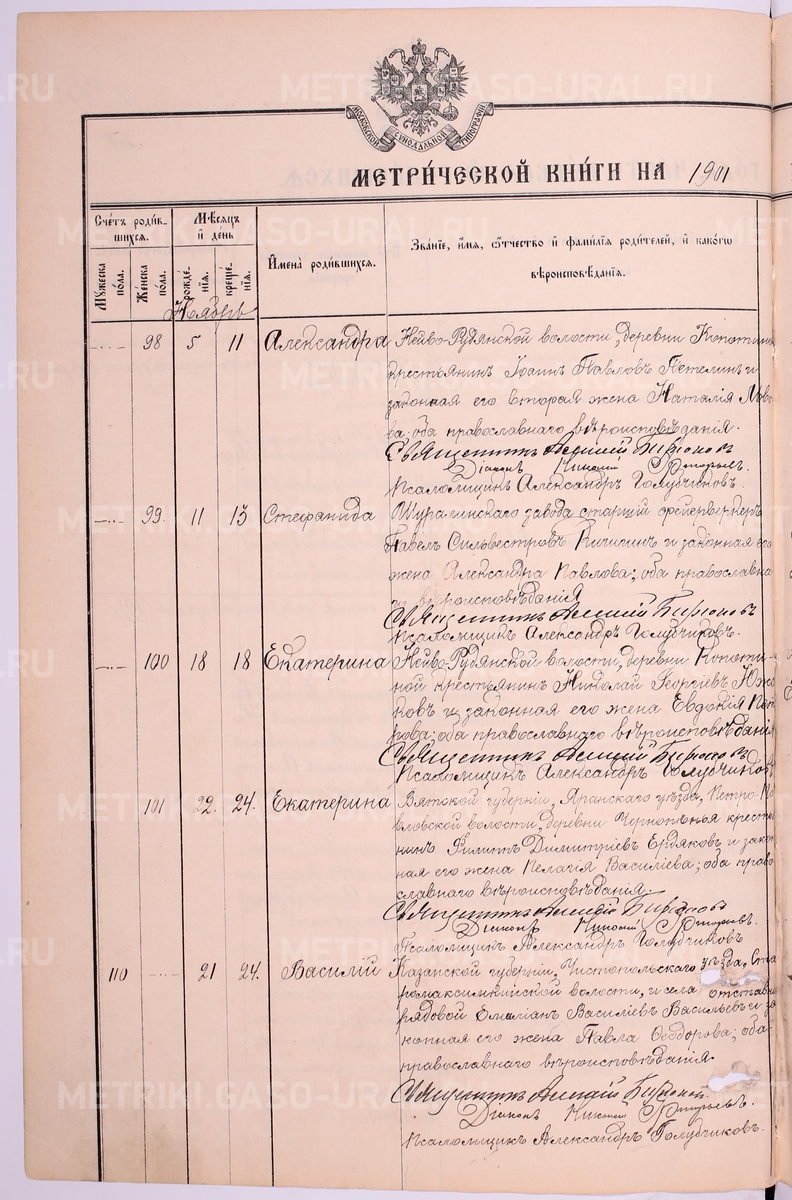 METRIKI.GASO-URAL.RU
МОСКОВСКОЙ СѴНОДАЛЬНОЙ ТИПОГРАФІИ
МЕТРИ́ЧЕСКОЙ КНИ́ГИ НА 1901
Сче́тъ роди́в-
шихсѧ.
Мꙋжеска по́ла.
Же́нска по́ла.
Мѣ́сяцъ
и҆ де́нь
рожде́-
нїѧ.
креще́-
нїѧ.
И҆мена̀ роди́вшихсѧ.
Зва́нїе, и҆́мѧ, ѻ҆́тчество и҆ фами́лїѧ роди́телей, и҆ како́гѡ
вѣроисповѣ́данїѧ.
Ноябрь
—·— 98 5 11 Александра Нейво-Рудянской волости, деревни
крестьянинъ Іоаннъ Павловъ Петелинъ и
законная его вторая жена Наталія
оба православнаго вѣроисповѣданія.
Священникъ Алексій Бирюковъ
Діаконъ Никоній
Псаломщикъ Александръ Голубчиковъ.
—·— 99. 11 13 Стефанида Шуралинскаго завода старшій фейерверкеръ
Павелъ Сильвестровъ Пичугинъ и законная его
жена Александра Павлова; оба православна
го вѣроисповѣданія
Священникъ Алексій Бирюковъ
Псаломщикъ Александръ Голубчиковъ.
—·— 100 18 18 Екатерина Нейво-Рудянской волости, деревни Копоти-
ной крестьянинъ Николай Георгіевъ
ковъ и законная его жена Евдокія
рова; оба православнаго вѣроисповѣданія
Священникъ Алексій Бирюковъ
Псаломщикъ Александръ Голубчиковъ
101 22. 24. Екатерина Вятской губерніи, Яранскаго уѣзда, Петро-Па
вловской волости, деревни крестья
нинъ Филиппъ Димитріевъ Ердяковъ и закон
ная его жена Пелагія Василіева; оба право
славнаго вѣроисповѣданія.
Священникъ Алексій Бирюковъ
Діаконъ Никоній
Псаломщикъ Александръ Голубчиковъ
110 —·— 21 24. Василій Казанской губерніи, Чистопольскаго уѣзда, Ста
ромаксимкинской волости, и села отставно
рядовой Емиліанъ Василіевъ Васильевъ и за
конная его жена Павла Ѳеодорова; оба
православнаго вѣроисповѣданія.
Священникъ Алексій Бирюковъ
Діаконъ Никоній
Псаломщикъ Александръ Голубчиковъ.